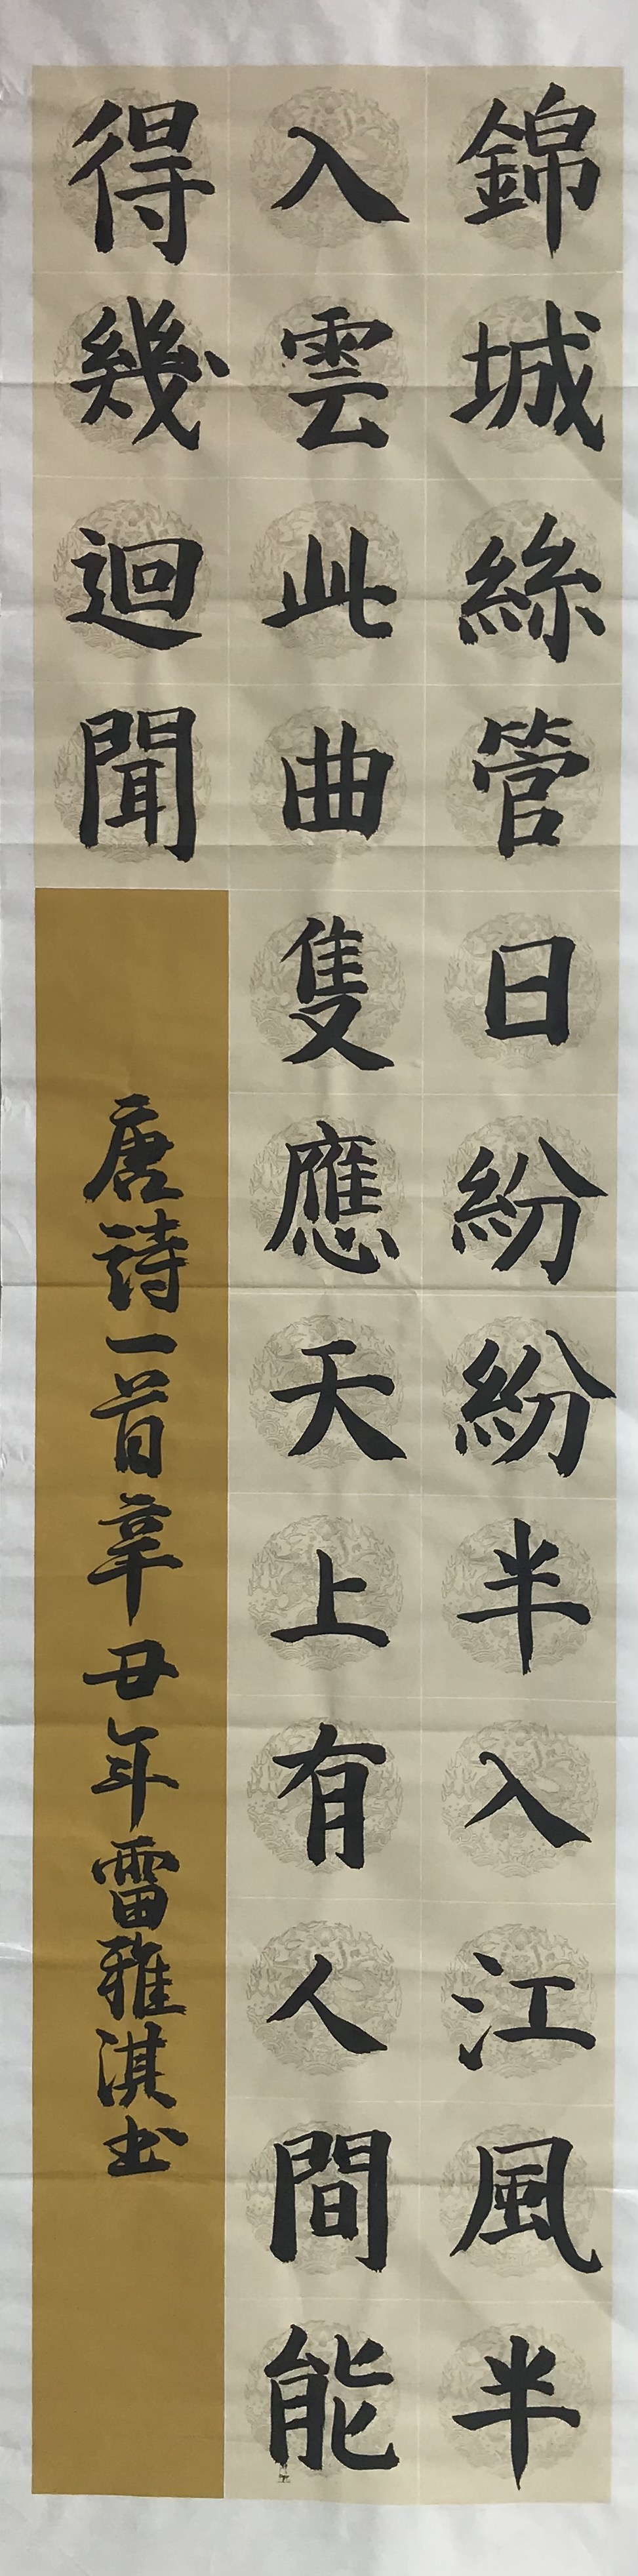 錦城絲管日紛紛半入江風半
入雲此曲隻應天上有人間能
得幾迴聞
唐詩一首辛丑年雷雅淇书